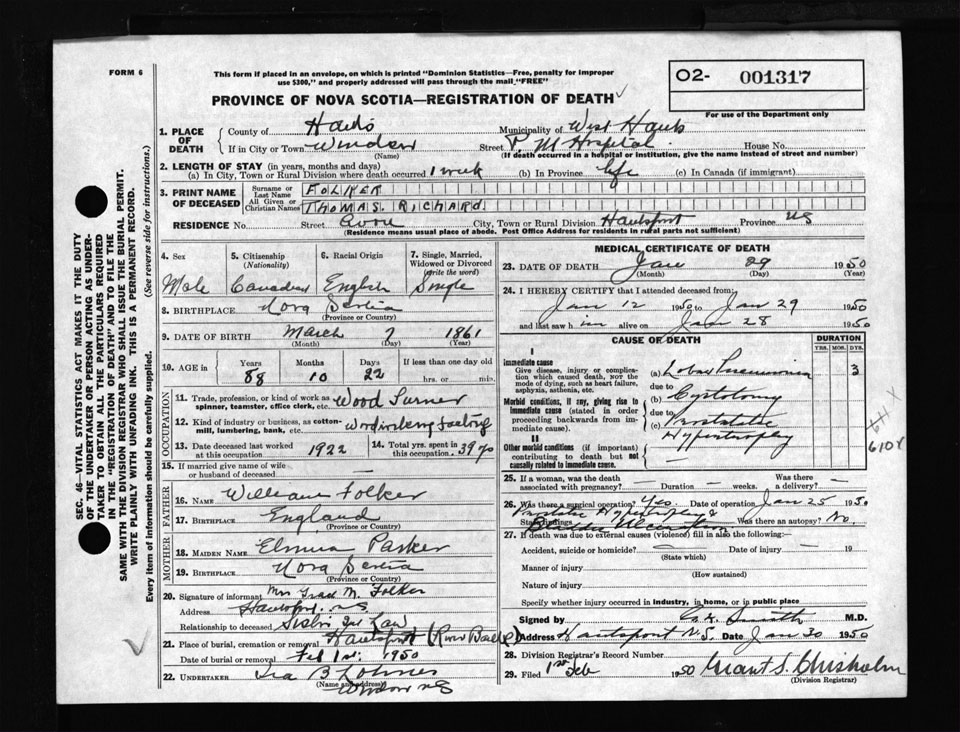 FORM 6
This form if placed in an envelope, on which is printed "Dominion Statistics—Free, penalty for improper
use $300," and properly addressed will pass through the mail "FREE"
O2- 001317
For use of the Department only
PROVINCE OF NOVA SCOTIA—REGISTRATION OF DEATH
1. PLACE OF DEATH
County of Hants Municipality of West Hants
If in City or Town Windsor Street P. M Hospital House No.
(Name) (If death occurred in a hospital or institution, give the name instead of street and number)
2. LENGTH OF STAY (in years, months and days)
(a) In City, Town or Rural Division where death occurred 1 week (b) In Province life (c) In Canada (if immigrant)
3. PRINT NAME OF DECEASED
Surname or Last Name FOLKER
All Given or Christian Names THOMAS. RICHARD.
RESIDENCE No. Street Avon City, Town or Rural Division Hantsport Province NS
(Residence means usual place of abode. Post Office Address for residents in rural parts not sufficient)
4. Sex 5. Citizenship (Nationality) 6. Racial Origin 7. Single, Married, Widowed or Divorced (write the word)
Male Canadian English Single
8. BIRTHPLACE Nova Scotia
(Province or Country)
9. DATE OF BIRTH March 7 1861
(Month) (Day) (Year)
10. AGE in Years Months Days If less than one day old
88 10 22 hrs. or min.
OCCUPATION
11. Trade, profession, or kind of work as spinner, teamster, office clerk, etc. Wood Turner
12. Kind of industry or business, as cotton-mill, lumbering, bank, etc.
13. Date deceased last worked at this occupation 1922 14. Total yrs. spent in this occupation 39 yo
15. If married give name of wife or husband of deceased —
FATHER
16. NAME William Folker
17. BIRTHPLACE England
(Province or Country)
MOTHER
18. MAIDEN NAME Parker
19. BIRTHPLACE Nova Scotia
(Province or Country)
20. Signature of informant Mrs M. Folker
Address Hantsport. NS.
Relationship to deceased Sister in Law
21. Place of burial, cremation or removal Hantsport
Date of burial or removal Feb 1st 1950
22. UNDERTAKER Ira B
(Name and address)
Windsor NS
MEDICAL CERTIFICATE OF DEATH
23. DATE OF DEATH Jan 29 1950
(Month) (Day) (Year)
24. I HEREBY CERTIFY that I attended deceased from:
Jan 12 1950 to Jan 29 1950
and last saw him alive on Jan 28 1950
CAUSE OF DEATH DURATION
YRS. MOS. DYS.
I
Immediate cause
Give disease, injury or complication which caused death, not the mode of dying, such as heart failure, asphyxia, asthenia, etc.
(a) Lobar Pneumonia 3
due to
Morbid conditions, if any, giving rise to immediate cause (stated in order proceeding backwards from immediate cause)
(b) Cystotomy
due to
(c) Prostatic Hypertrophy
II
Other morbid conditions (if important) contributing to death but not causally related to immediate cause. —
610X
25. If a woman, was the death associated with pregnancy? — Duration — weeks. Was there a delivery? —
26. Was there a surgical operation? Yes Date of operation Jan 25 1950
State findings Prostatic Hypertrophy & Bladder Was there an autopsy? No.
27. If death was due to external causes (violence) fill in also the following:—
Accident, suicide or homicide? — Date of injury — 19
(State which)
Manner of injury
(How sustained)
Nature of injury
Specify whether injury occurred in industry, in home, or in public place
Signed by Smith M.D.
Address Hantsport N.S. Date Jan 30 1950
28. Division Registrar's Record Number
29. Filed 1st Feb 1950 Grant S. Chisholm
(Division Registrar)
SEC. 46—VITAL STATISTICS ACT MAKES IT THE DUTY
OF THE UNDERTAKER OR PERSON ACTING AS UNDER-
TAKER TO OBTAIN ALL THE PARTICULARS REQUIRED
IN THE "REGISTRATION OF DEATH" AND TO FILE THE
SAME WITH THE DIVISION REGISTRAR WHO SHALL ISSUE THE BURIAL PERMIT.
WRITE PLAINLY WITH UNFADING INK. THIS IS A PERMANENT RECORD.
Every item of information should be carefully supplied. (See reverse side for instructions.)